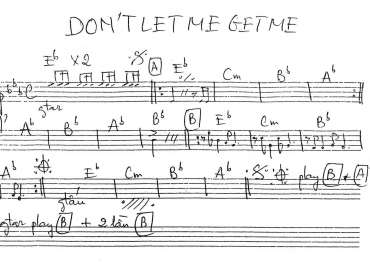 DON'T LET ME GET ME
E♭ X2 A E♭ Cm B♭ A♭
gtar
A♭ B♭ A♭ B♭ B E♭ Cm B♭
A♭ E♭ Cm B♭ A♭ play B + A
gtar play B + 2 lần B